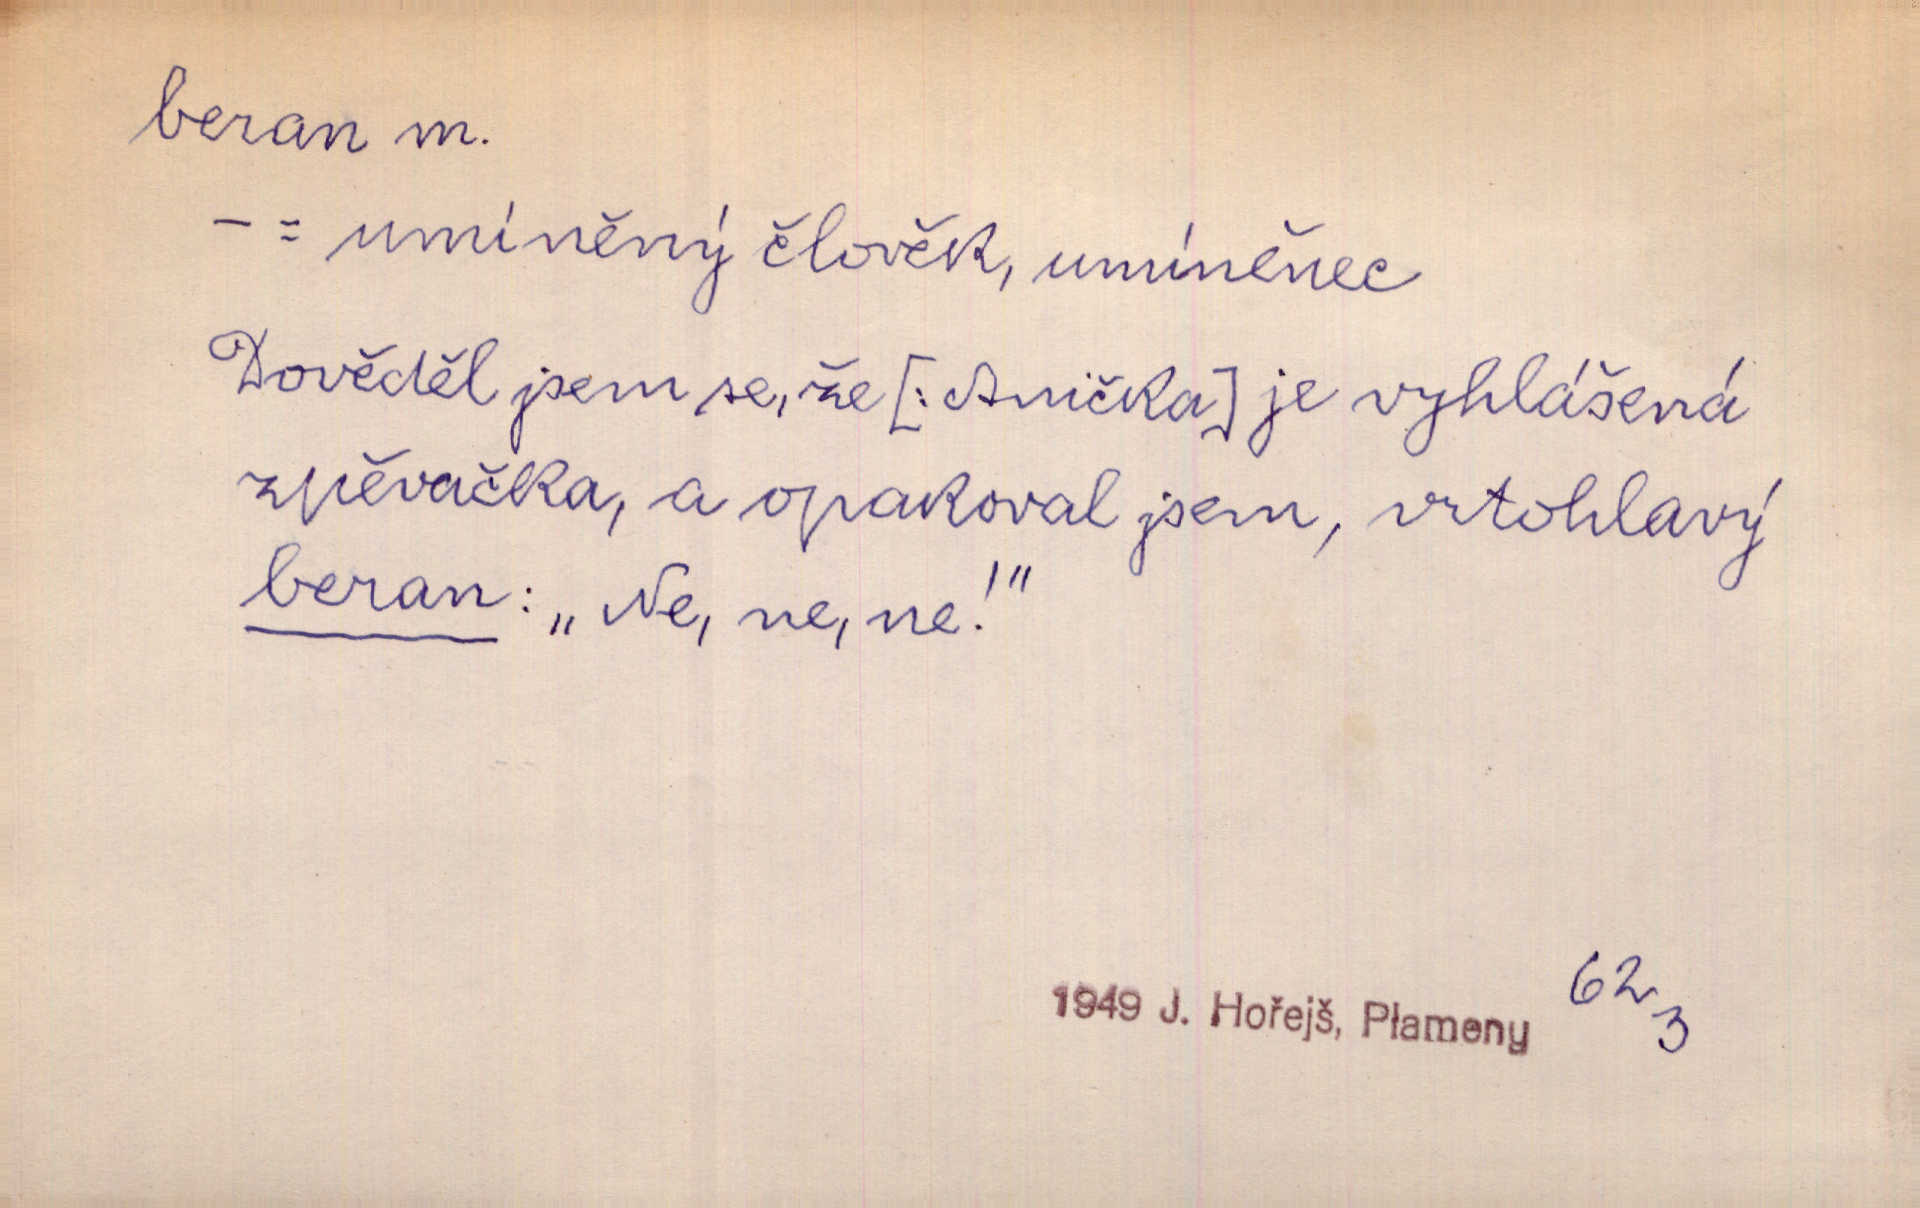 beran m.
- = umíněný člověk, umíněnec
Dověděl jsem se, že [: Anička] je vyhlášená
zpěvačka, a opakoval jsem, vrtohlavý
beran: „Ne, ne, ne!"
1949 J. Hořejš, Plameny 62
3